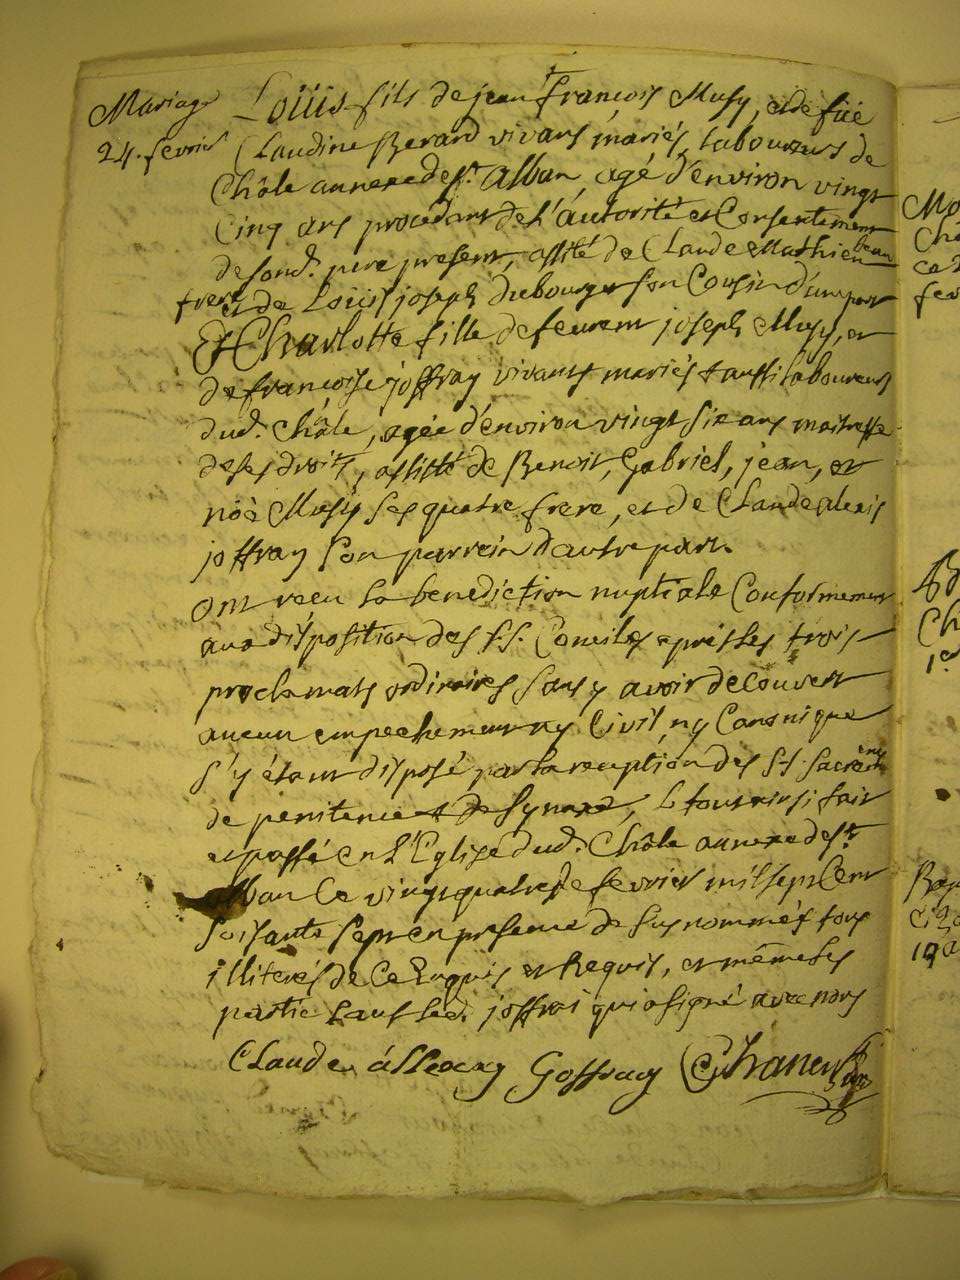 Mariage
24. fevrier
Loüis fils de jean François Musy, et de füe
Claudine Berard vivans mariés, laboureurs de
Châle annexe de St. Alban, agé d'environ vingt
Cinq ans procedant de l'áutorité et Consentement
de sond. pere present, assité de Claude Mathieu beau
frere et de Loüis joseph dubourg son Cousin d'une part
Et Charlotte fille de feu joseph Musy, et
de françoise joffray vivants mariés aussi laboureurs
dud. Châle, agée d'environ vingt six ans maitresse
de ses droits, assisté de Benoit, Gabriel, jean, et
noé Musy ses quatre frere, et de Claude Alexis
joffray son parrein d'autre part.
Ont reçu la benediction nuptiale Conformement
aux disposition des S.S. Conciles apres les trois
proclamats ordinaires sans y avoir decouvert
aucun empechement ny Civil, ny Canonique
s'y étant disposé par la reception des S.S. Sacrements
de penitence et de Synaxe, le tout ainsi fait
et passé en l'Eglise dud. Châle annexe de St.
Alban Ce vingt quatre de fevrier mil sept Cent
soisante sept en presence de susnommés tous
illiterés de Ce Enquis et Requis, et même les
partie sauf led. joffrai qui a signé avec nous
CLaude állexy Goffray